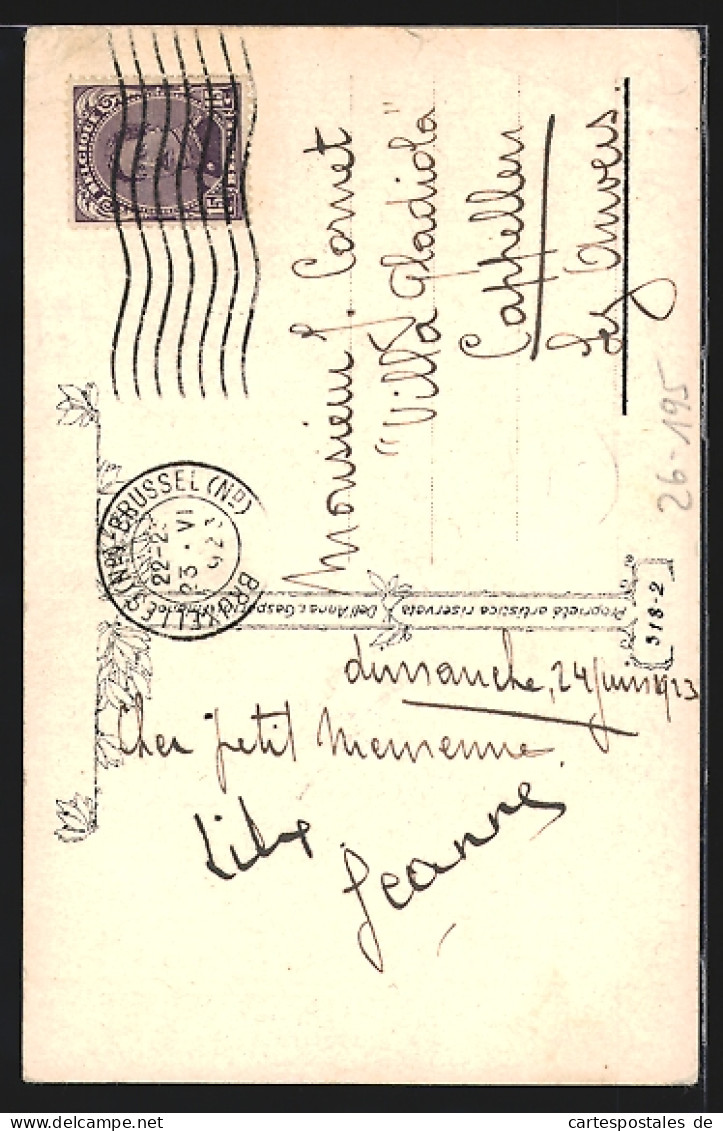 Monsieur J. Cornet
"Villa Gladiola"
Cappellen
lez Anvers.
26-195
BRUXELLES (Nd)-BRUSSEL (Nd)
22-2
23 VI
923
Proprietà artistica riservata
Dell'Anna & Gasparini
318-2
dimanche, 24 juin 1923
Cher petit
Lily
Jeanne
www.delcampe.net
cartespostales de